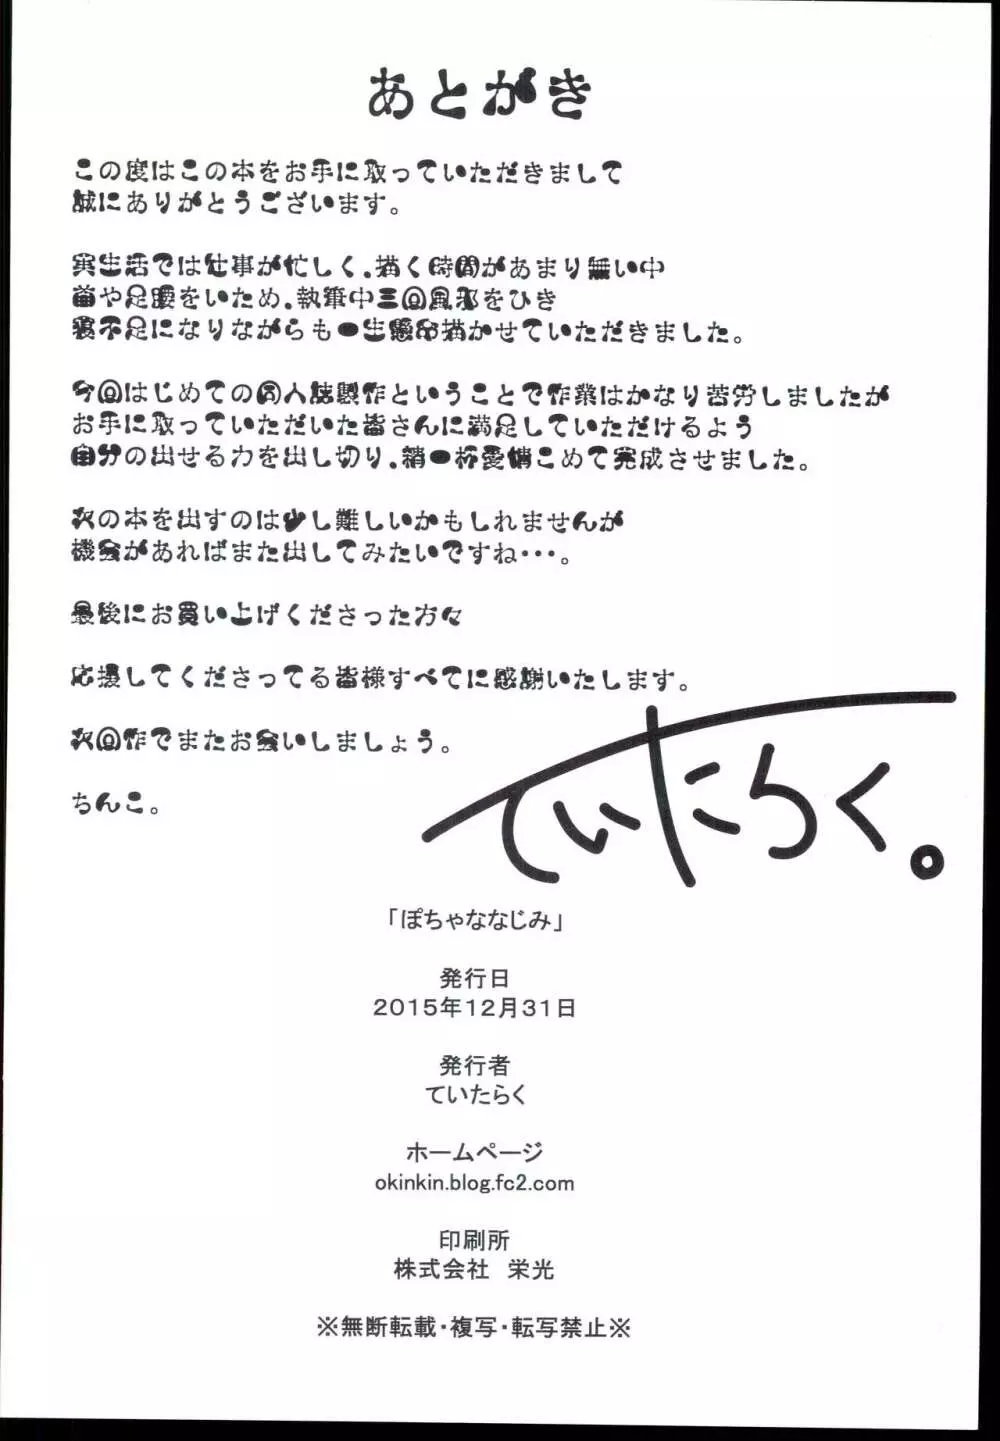 あとがき
この度はこの本をお手に取っていただきまして
誠にありがとうございます。
実生活では仕事が忙しく、描く時間があまり無い中
首や足腰をいため、執筆中三回風邪をひき
寝不足になりながらも一生懸命描かせていただきました。
今回はじめての同人誌製作ということで作業はかなり苦労しましたが
お手に取っていただいた皆さんに満足していただけるよう
自分の出せる力を出し切り、精一杯愛情こめて完成させました。
次の本を出すのは少し難しいかもしれませんが
機会があればまた出してみたいですね・・・。
最後にお買い上げくださった方々
応援してくださってる皆様すべてに感謝いたします。
次回作でまたお会いしましょう。
ちんこ。
ていたらく。
「ぽちゃななじみ」
発行日
2015年12月31日
発行者
ていたらく
ホームページ
okinkin.blog.fc2.com
印刷所
株式会社　栄光
※無断転載・複写・転写禁止※